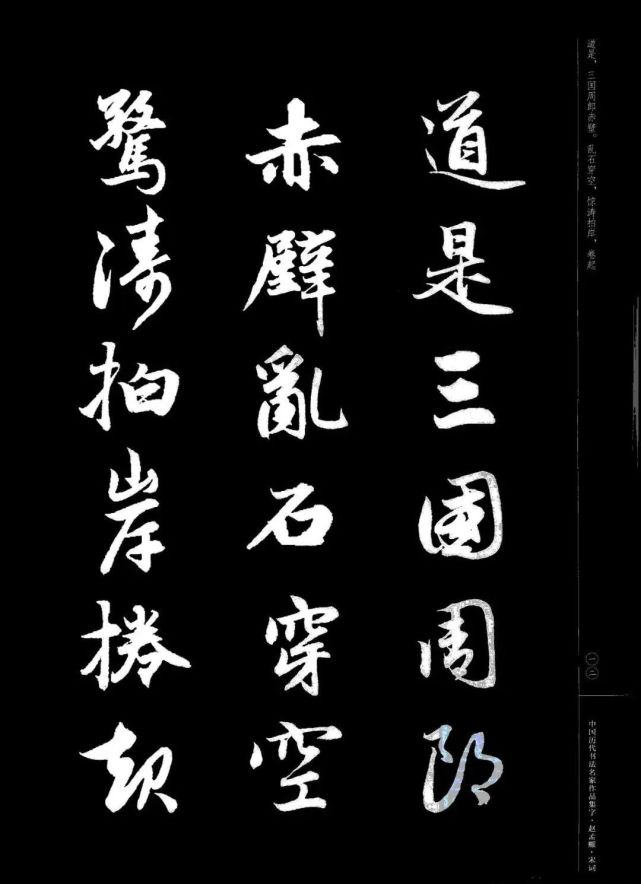 道是三國周郎
赤壁亂石穿空
驚濤拍岸捲起
道是，三国周郎赤壁。乱石穿空，惊涛拍岸，卷起
一〇
中国历代书法名家作品集字·赵孟頫·宋词